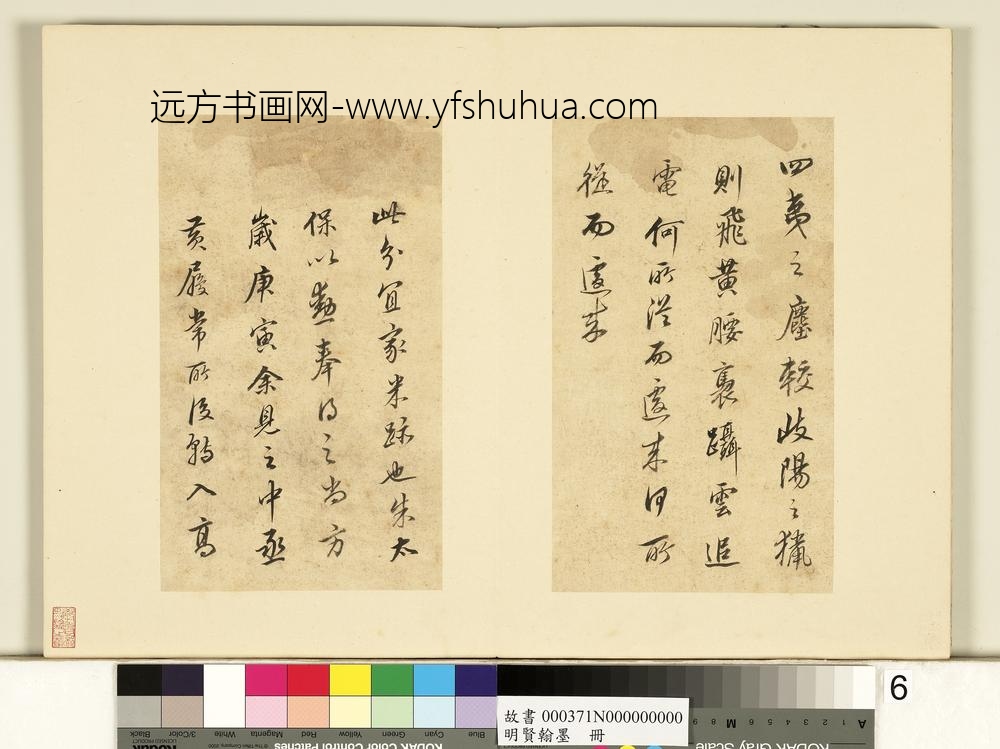 远方书画网-www.yfshuhua.com
四夷之塵較岐陽之獵
則飛黄腰裹躡雲追
電何所從而遽來何所
從而遽來
此分宜家米跡也朱太
保以勳奉得之尚方
歲庚寅余見之中丞
黄履常所後歸入高
6
故書 000371N000000000
明賢翰墨 冊
Black
3/Color
White
Magenta
Red
Yellow
Green
Cyan
Blue
A 1 2 3 4 5 6 M 8 9
KODAK Color Control Patches
KODAK Gray Scale
Kodak
LICENSED PRODUCT